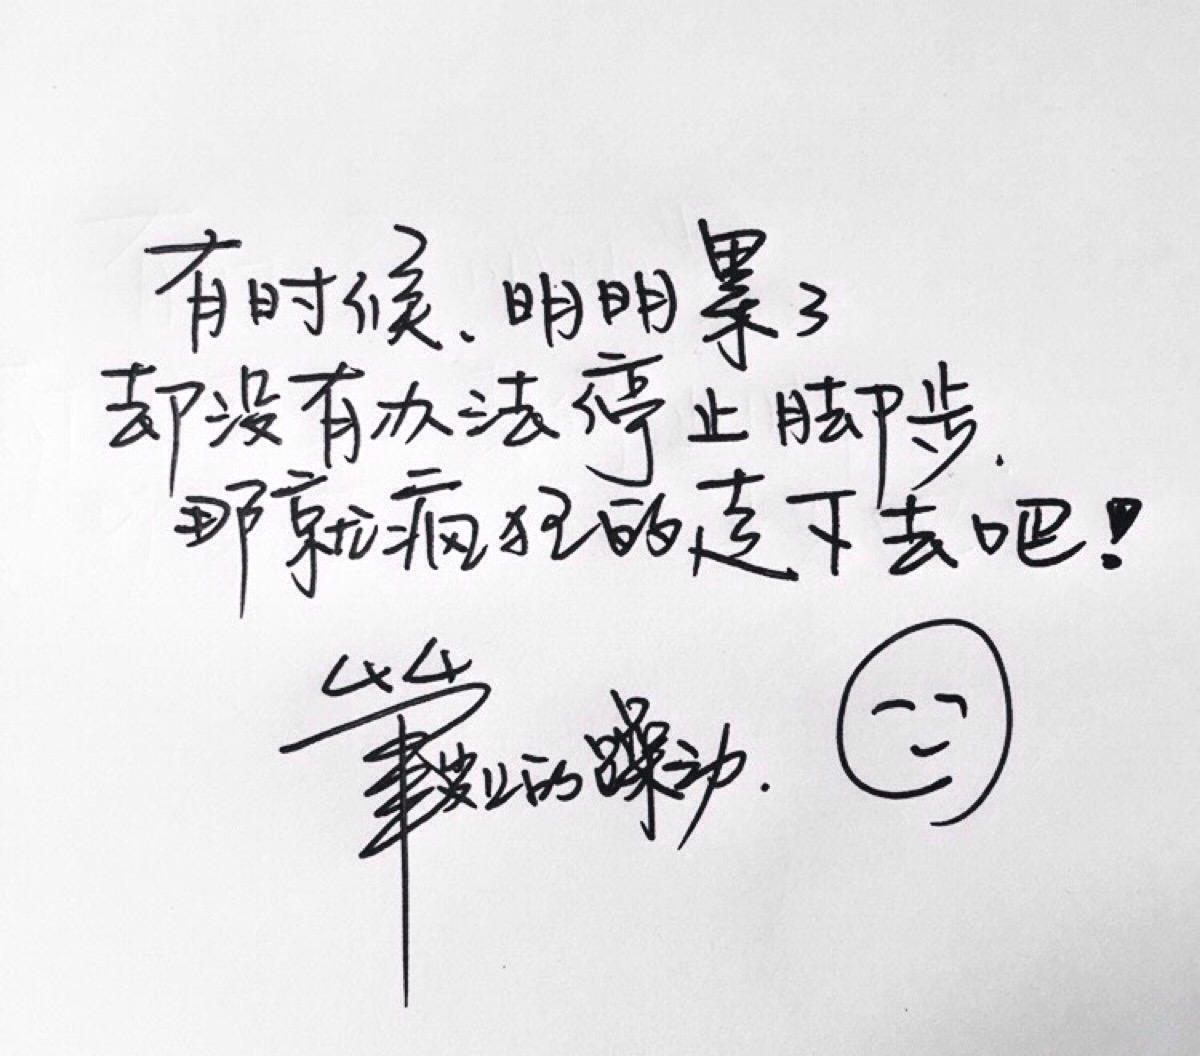 有时候.明明累了
却没有办法停止脚步.
那就疯狂的走下去吧!
笔数儿的躁动.